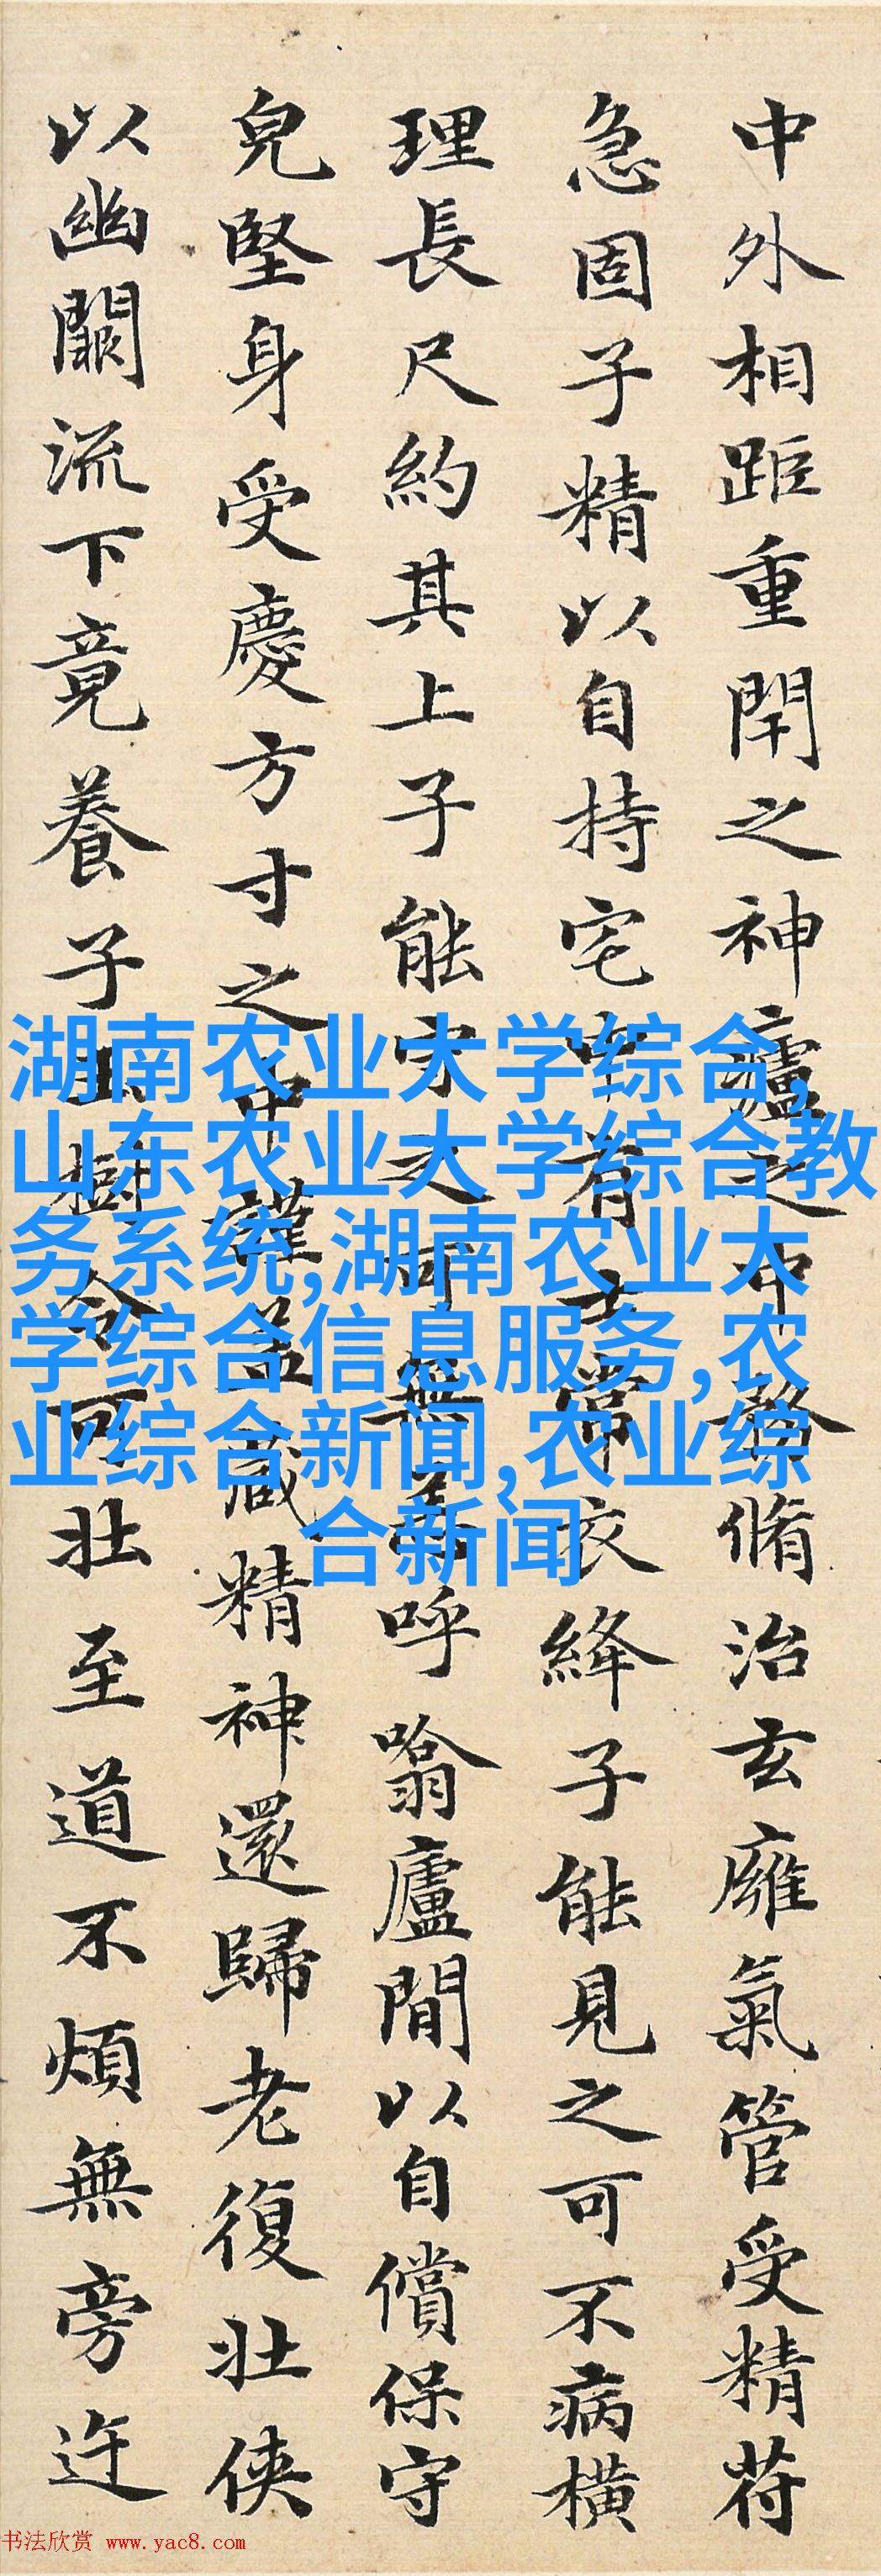 中外相距重閇之神廬之中務脩治玄廱氣管受精苻
急固子精以自持宅中有士常衣絳子能見之可不病橫
理長尺約其上子能守之可無恙呼噏廬間以自償保守
皃堅身受慶方寸之中謹蓋藏精神還歸老復壯俠
以幽闕流下竟養子玉樹令可壯至道不煩無旁迕
湖南农业大学综合,
山东农业大学综合教
务系统,湖南农业大
学综合信息服务,农
业综合新闻,农业综
合新闻
书法欣赏 www.yac8.com